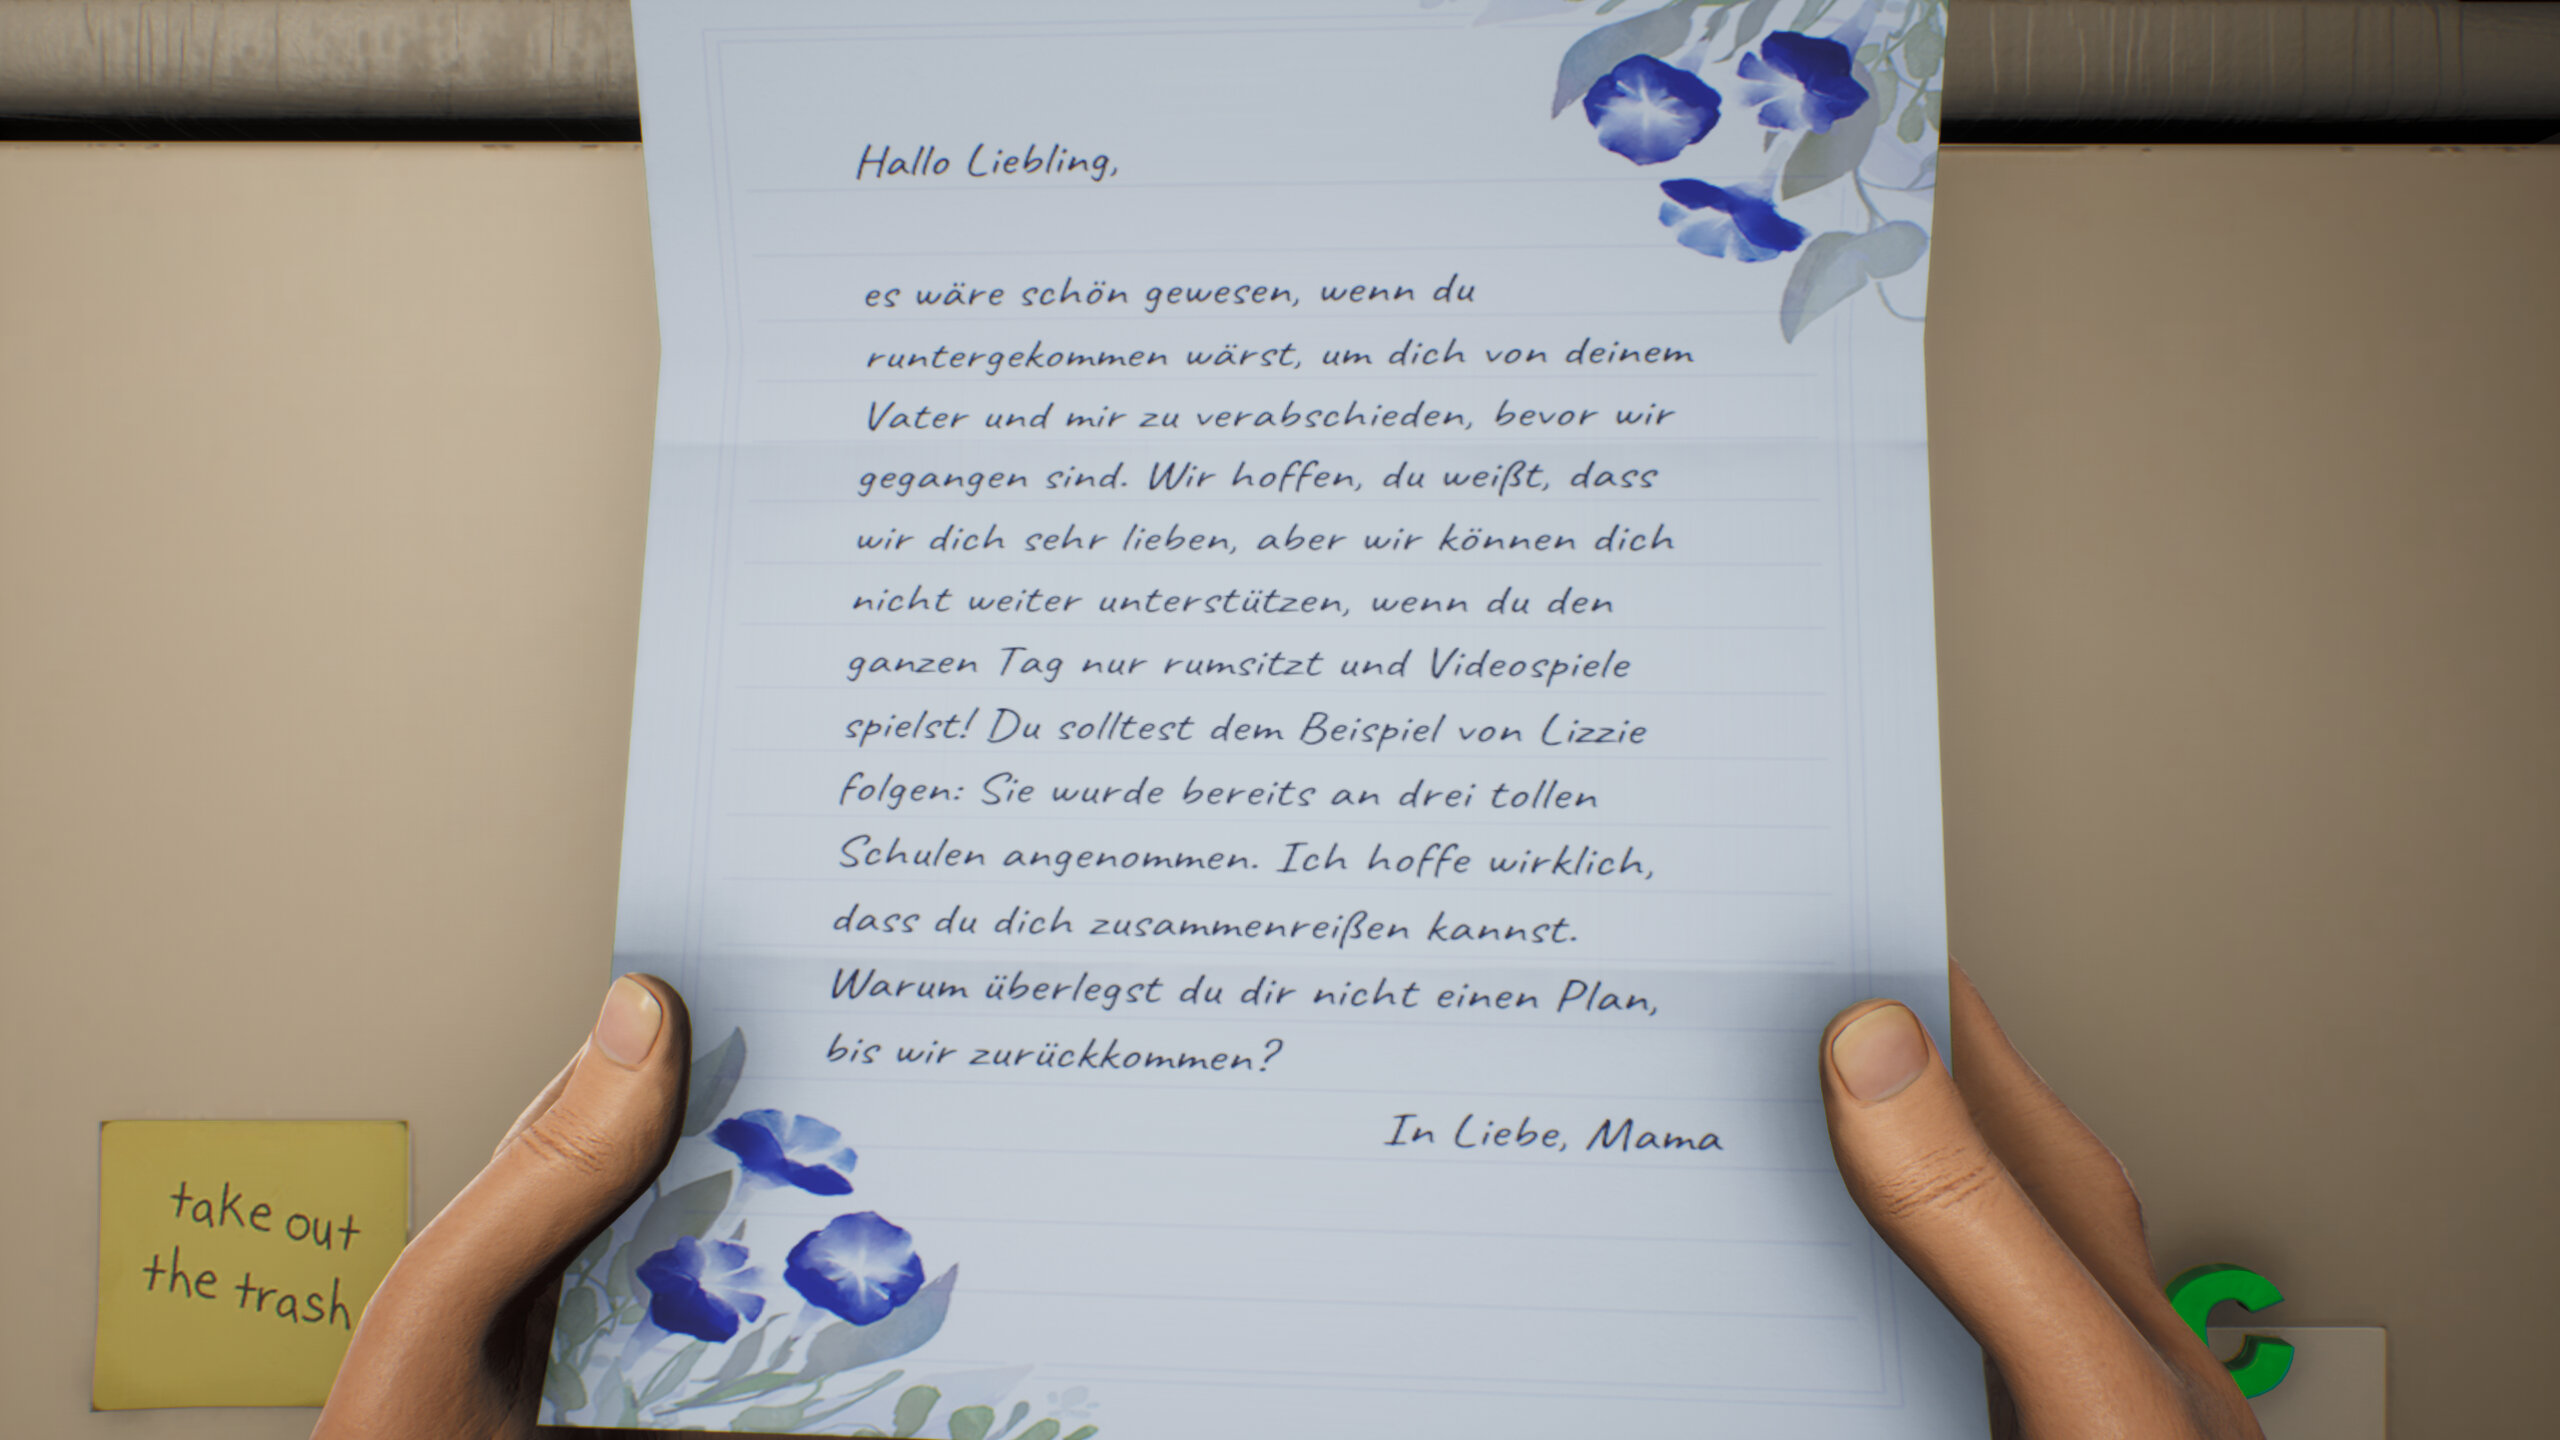 Hallo Liebling,
es wäre schön gewesen, wenn du
runtergekommen wärst, um dich von deinem
Vater und mir zu verabschieden, bevor wir
gegangen sind. Wir hoffen, du weißt, dass
wir dich sehr lieben, aber wir können dich
nicht weiter unterstützen, wenn du den
ganzen Tag nur rumsitzt und Videospiele
spielst! Du solltest dem Beispiel von Lizzie
folgen: Sie wurde bereits an drei tollen
Schulen angenommen. Ich hoffe wirklich,
dass du dich zusammenreißen kannst.
Warum überlegst du dir nicht einen Plan,
bis wir zurückkommen?
In Liebe, Mama
take out
the trash